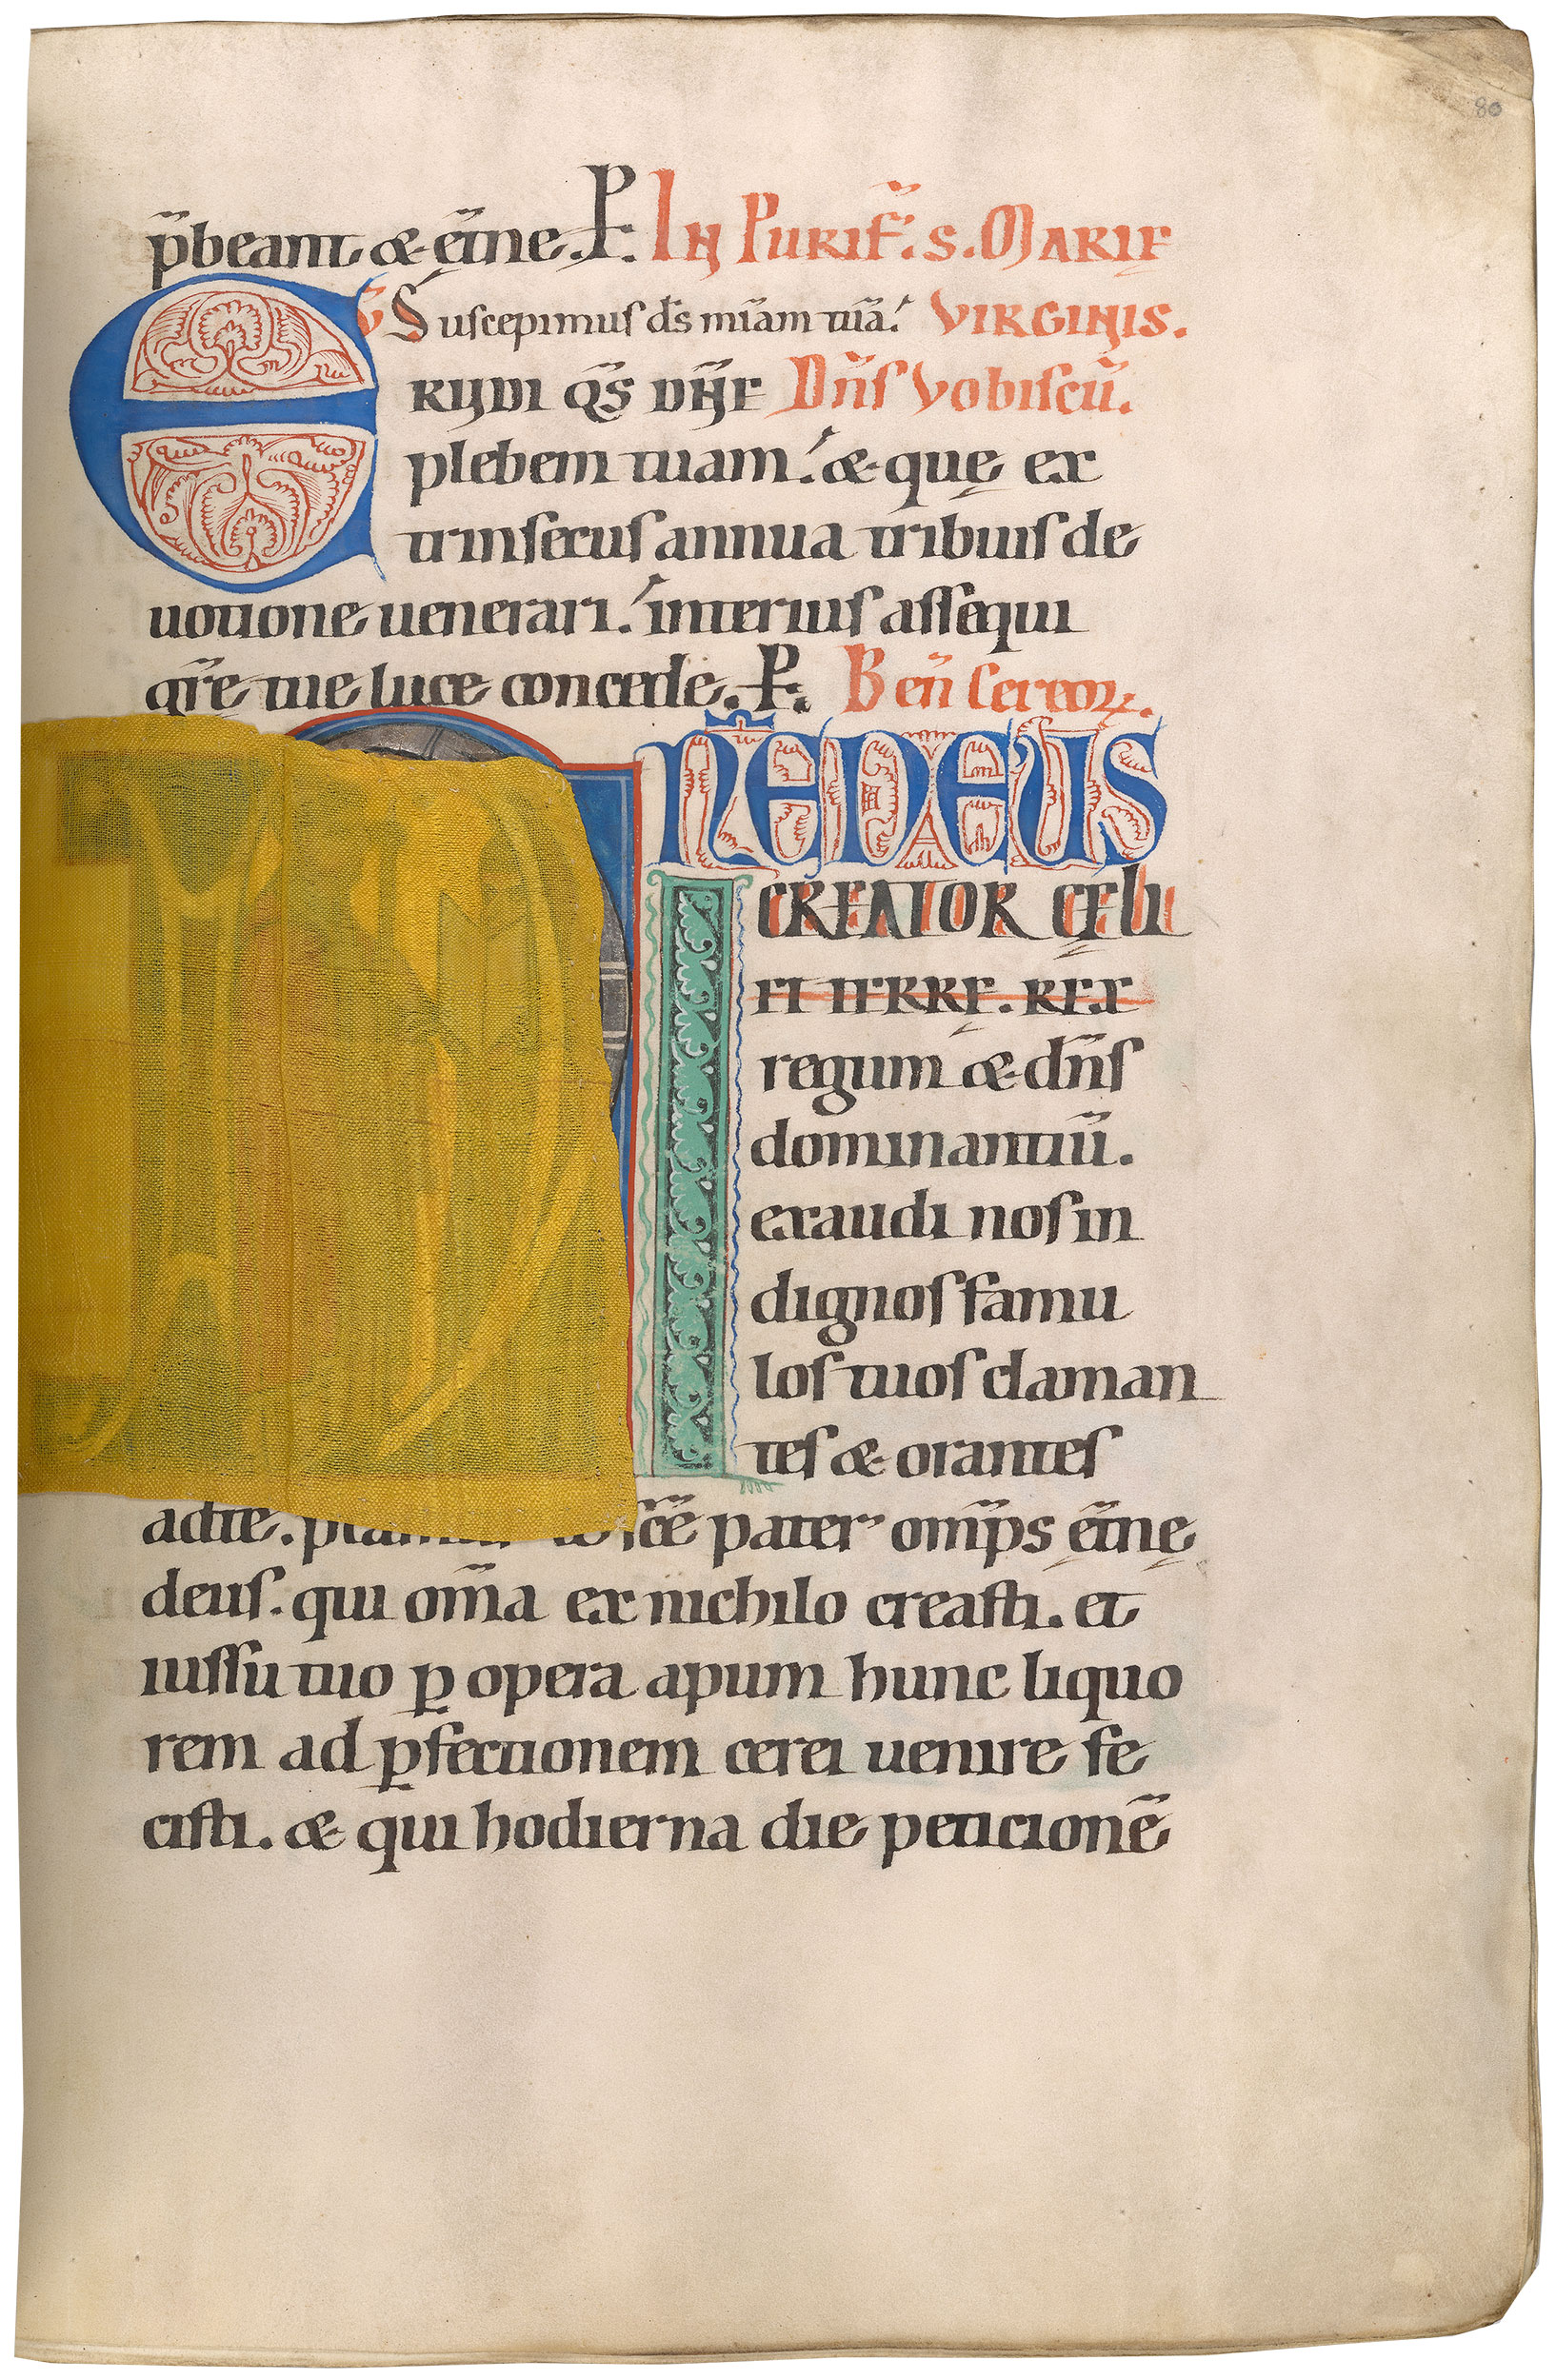 80
p̄beant & et̄ne. P. In Purif̄. s. Marię
Suscepimus ds̄ miam̄ tuā. Virginis.
Erudi qs̄ dn̄e Dn̄s vobiscū.
plebem tuam. & quę ex
trinsecus annua tribuis de
uotione uenerari. interius assequi
gr̄e tue luce concede. P. Ben̄ cereoꝝ.
ne Deus
creator cęli
et terrę. rex
regum & dn̄s
dominantiū.
exaudi nos in
dignos famu
los tuos claman
tes & orantes
ad te. sc̄e pater omp̄s et̄nę
deus. qui om̄a ex nichilo creasti. et
iussu tuo ꝑ opera apum hunc liquo
rem ad ꝑfectionem cerei uenire fe
cisti. & qui hodierna die peticionē